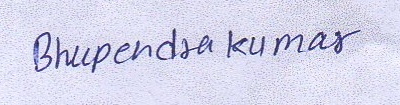 Bhupendra kumar